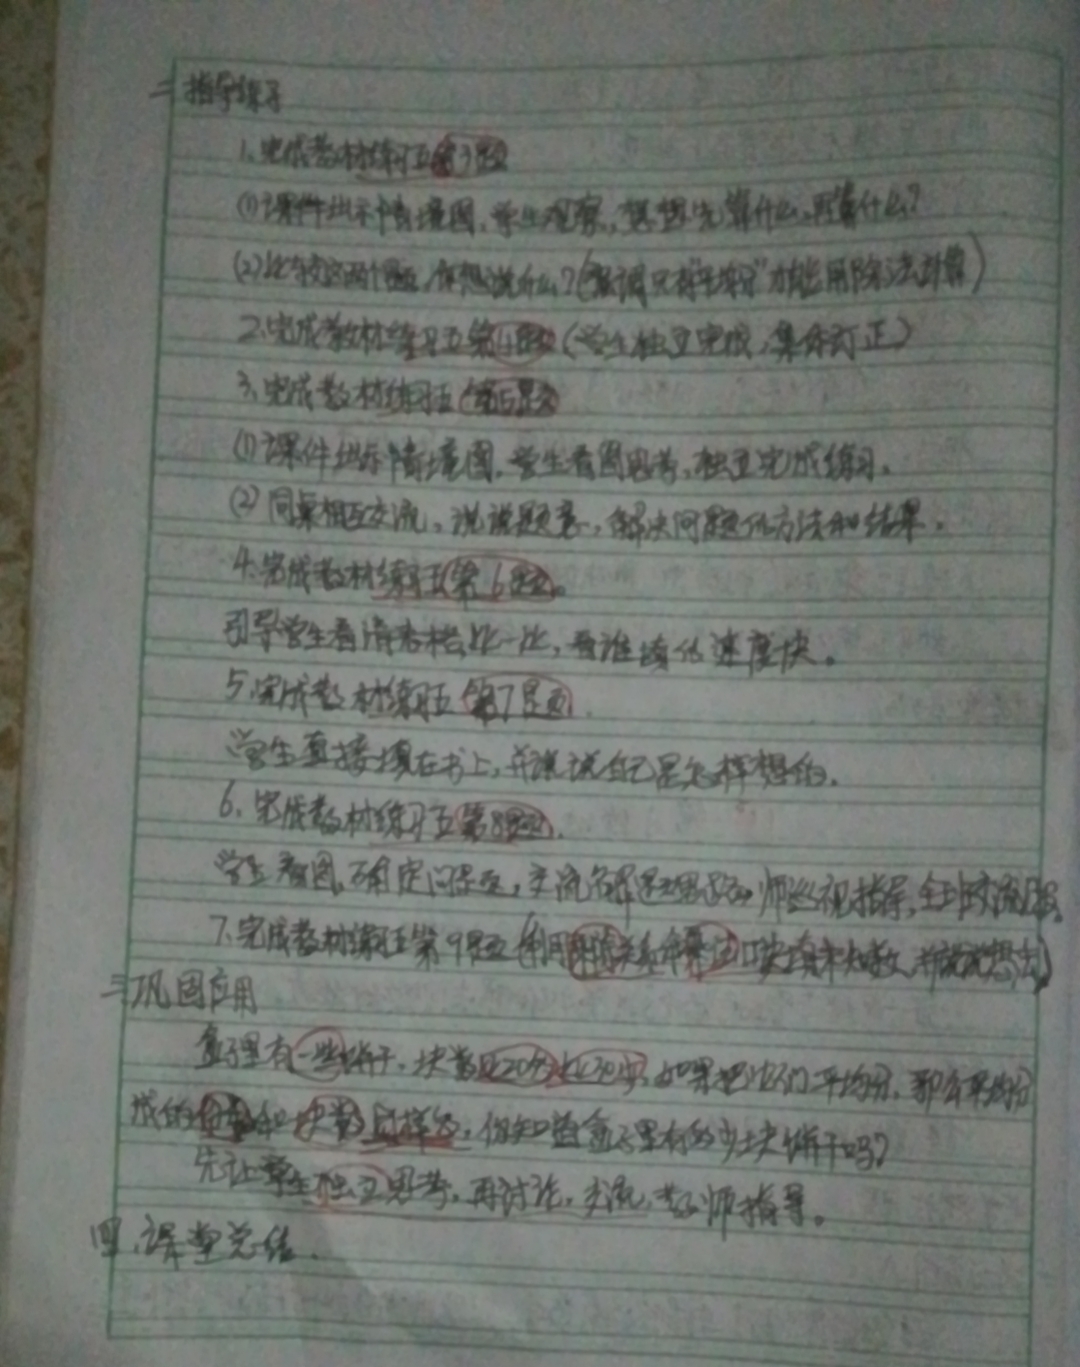 二 指导练习
1、完成教材练习五第3题
(1)课件出示情境图,学生观察,想想先算什么,再算什么?
(2)比较这两个题,你想说什么?(强调只有“平均分”才能用除法计算)
2、完成教材练习五第4题(学生独立完成,集体订正)
3、完成教材练习五第5题
(1)课件出示情境图,学生看图思考,独立完成练习。
(2)同桌相互交流,说说题意,解决问题的方法和结果。
4、完成教材练习五第6题。
引导学生看清表格,比一比,看谁填的速度快。
5、完成教材练习五第7题.
学生直接填在书上,并说说自己是怎样想的.
6、完成教材练习五第8题.
学生看图,确定问题,交流解题思路,师巡视指导,全班交流
7、完成教材练习五第9题(利用关系和乘法口诀填未知数,并说说想法)
三 巩固应用
盒子里有一些饼干,块数比20多,比30少,如果把它们平均分,那么平均分
成的份数和块数同样多,你知道盒子里有多少块饼干吗?
先让学生独立思考,再讨论,交流,教师指导。
四、课堂总结.